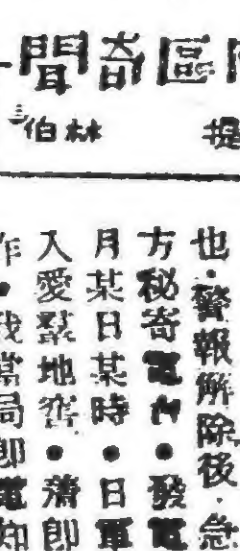 區奇聞
提 林伯
也·警報解除後·急
方秘寄電台●發電
月某日某時●日軍
入愛地窖●即
作●我當局即電知